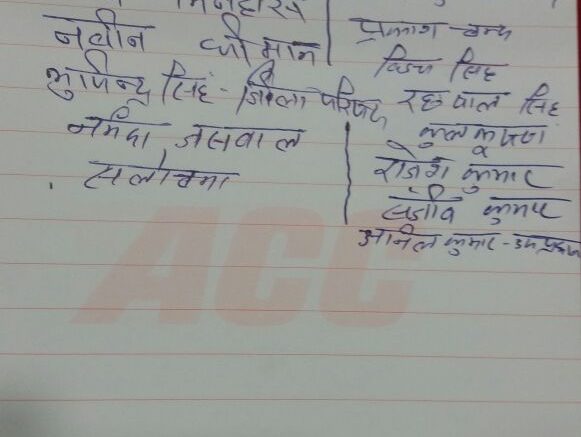 नवीन धीमान
भुपिन्द्र सिंह - जिला परिषद
नर्मदा जसवाल
सलोचना
प्रकाश चन्द
विजय सिंह
रछपाल सिंह
कुल भूषण
राजेश कुमार
संजीव कुमार
अनिल कुमार - उपप्रधान
ACC